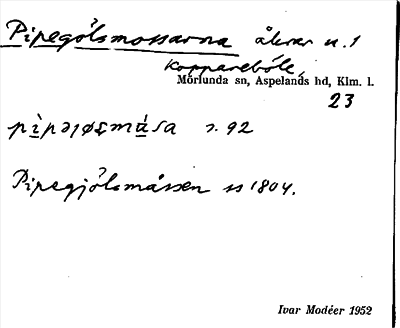 Pipegölsmossarna åkrar u. 1
Kopparebóle,
Mörlunda sn, Aspelands hd, Klm. l.
23
s. 92
Pipegjölsmåssen ss 1804.
Ivar Modéer 1952